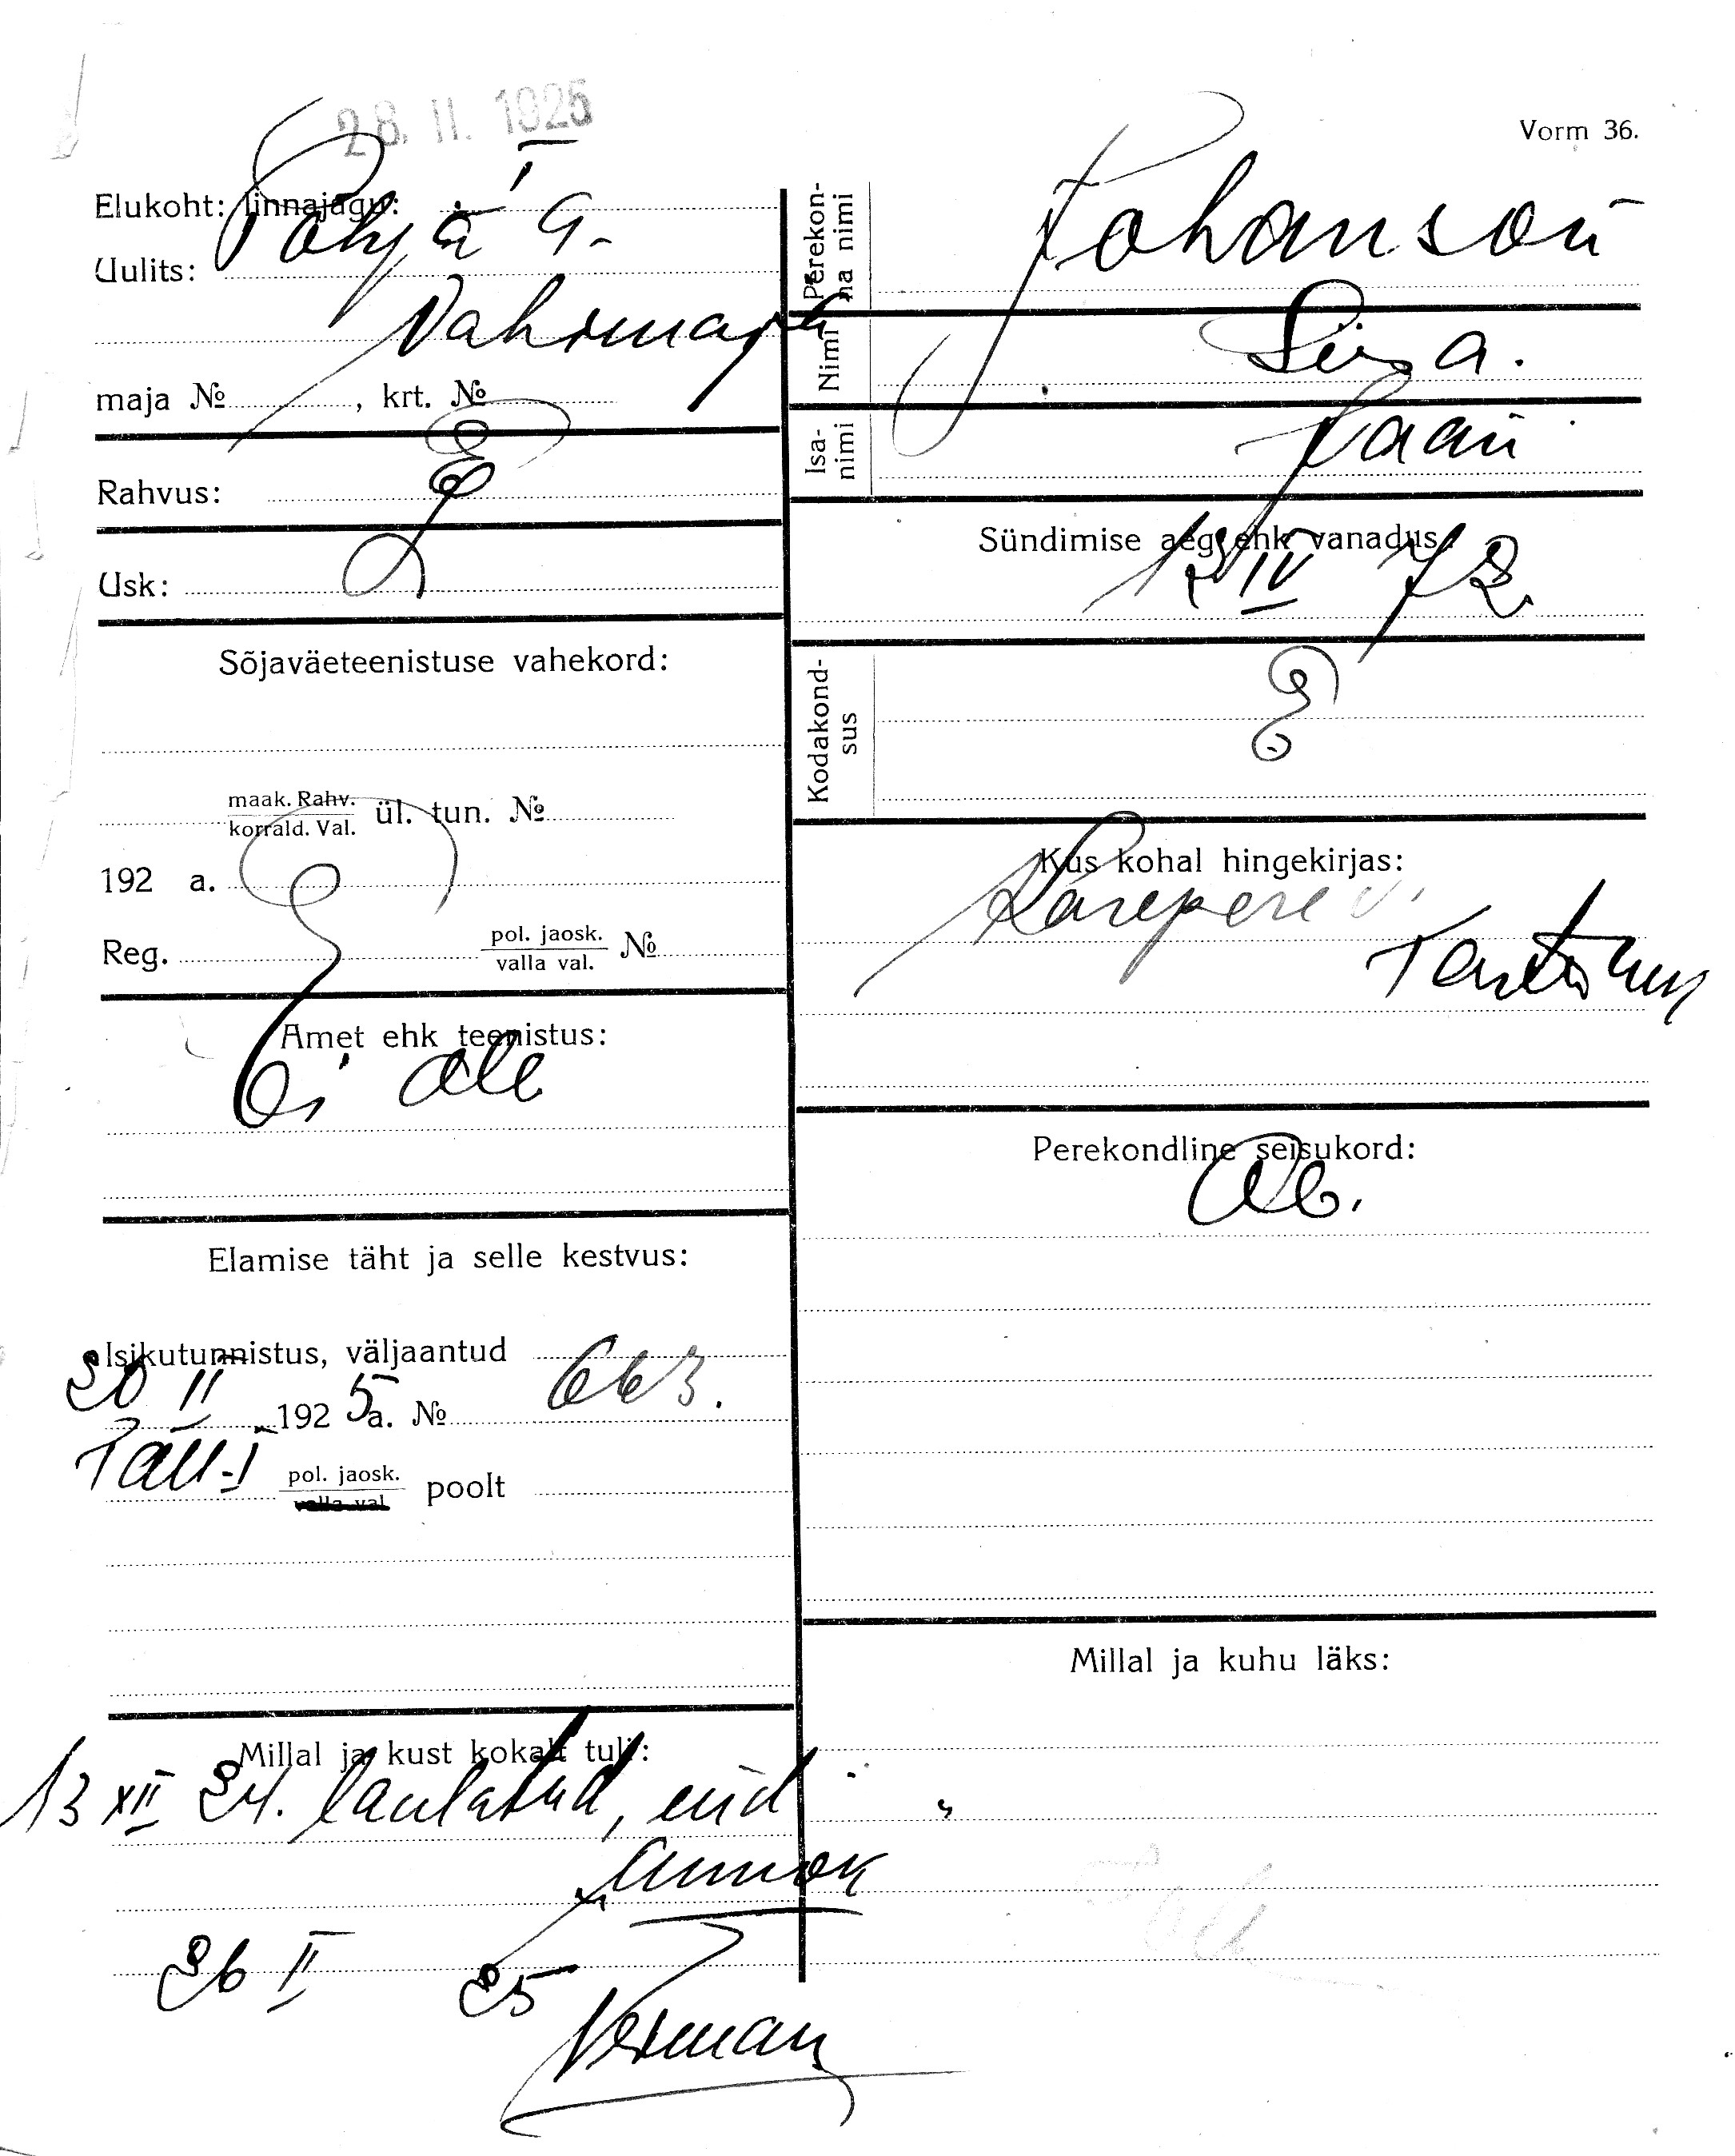 28. II. 1925
Vorm 36.
Elukoht: linnajagu: I
Põhja 9.
Uulits:
maja № , krt. №
Rahvus: E
Usk: L
Sõjaväeteenistuse vahekord:
maak. Rahv.
korrald. Val. ül. tun. №
192 a.
Reg. pol. jaosk.
valla val. №
Amet ehk teenistus:
Ei ole
Elamise täht ja selle kestvus:
Isikutunnistus, väljaantud
26 II 1925 a. № 663.
Tall. I pol. jaosk.
valla val. poolt
Millal ja kust kohalt tuli:
13 XII 24. laulatud, end
Annok
26 II 25
Perekon-
na nimi
Johanson
Nimi
Liisa.
Isa-
nimi
Jaan
Sündimise aeg ehk vanadus:
12 IV 72
Kodakond-
sus
E
Kus kohal hingekirjas:
Perekondline seisukord:
Ab.
Millal ja kuhu läks: